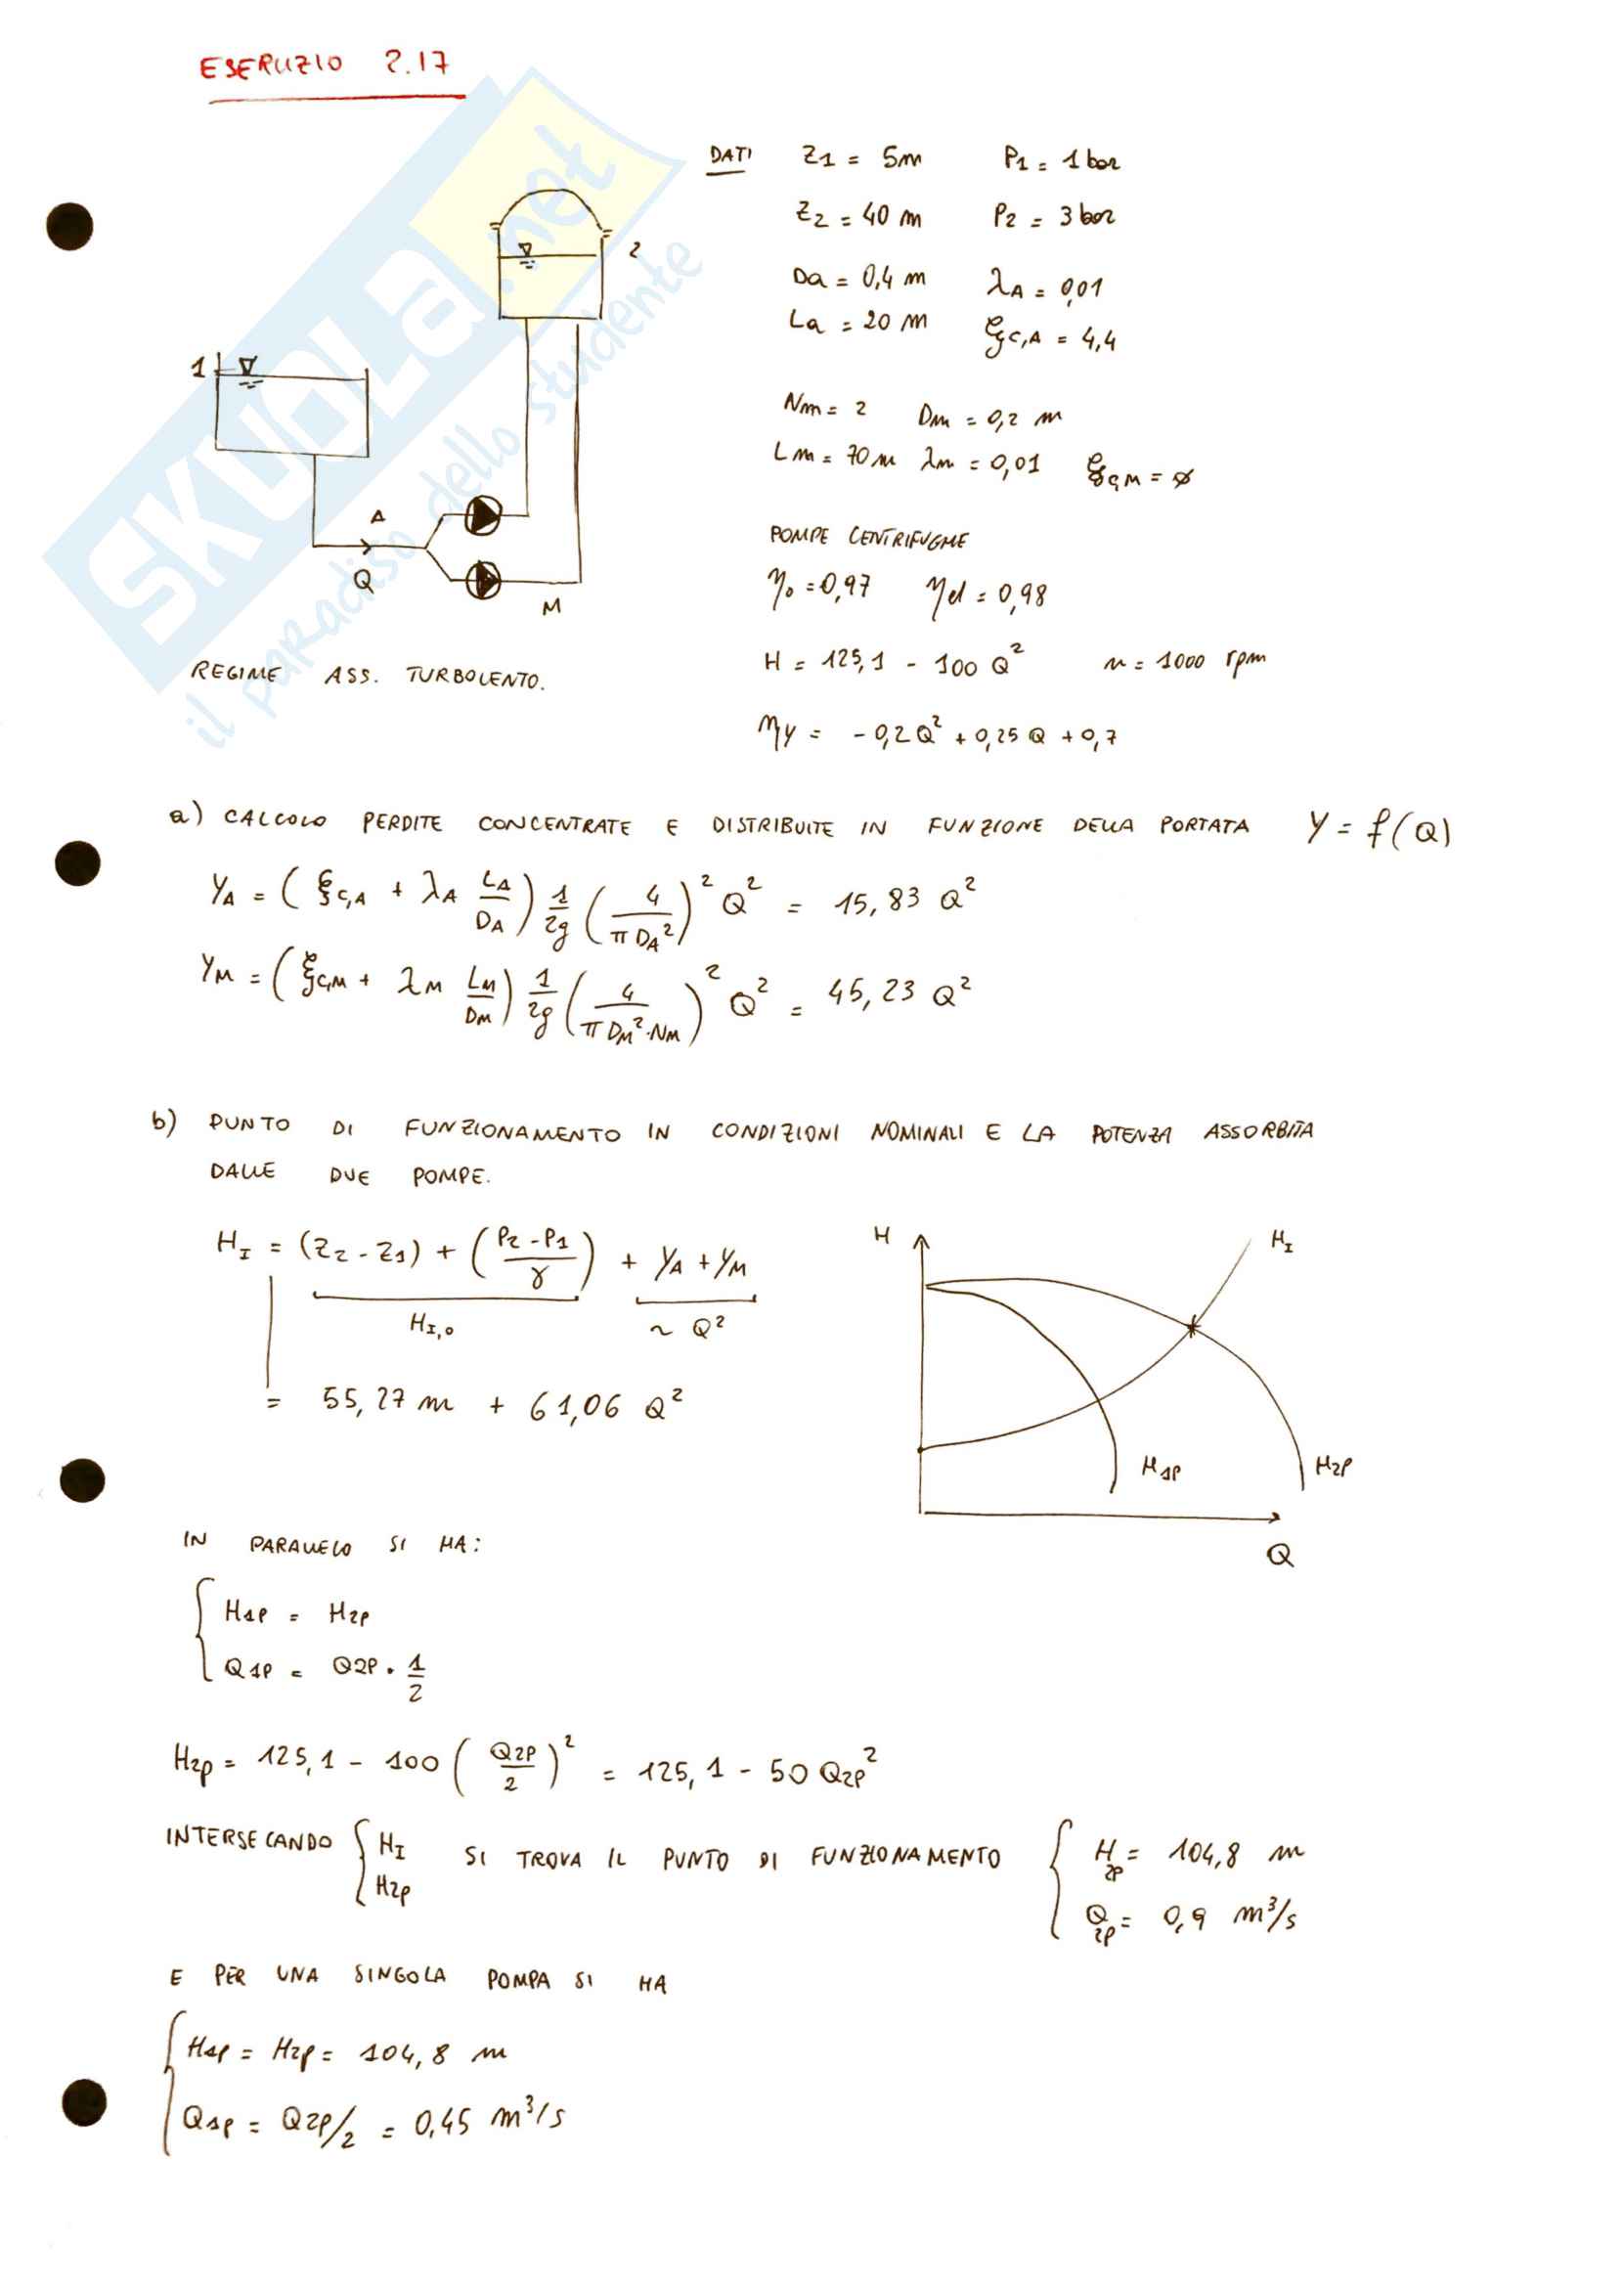 ESERCIZIO 2.17
DATI Z1 = 5m P1 = 1 bar
Z2 = 40 m P2 = 3 bar
Da = 0,4 m λA = 0,01
La = 20 m ξC,A = 4,4
Nm = 2 Dm = 0,2 m
Lm = 70 m λm = 0,01 ξC,M = ∅
POMPE CENTRIFUGHE
η0 = 0,97 ηel = 0,98
H = 125,1 - 100 Q² n = 1000 rpm
ηy = - 0,2 Q² + 0,25 Q + 0,7
1
2
A
Q
M
SKUOLA.net
il paradiso dello studente
REGIME ASS. TURBOLENTO.
a) CALCOLO PERDITE CONCENTRATE E DISTRIBUITE IN FUNZIONE DELLA PORTATA Y = f(Q)
YA = (ξC,A + λA LA/DA) 1/2g (4/π DA²)² Q² = 15,83 Q²
YM = (ξC,M + λM LM/DM) 1/2g (4/π DM²·NM)² Q² = 45,23 Q²
b) PUNTO DI FUNZIONAMENTO IN CONDIZIONI NOMINALI E LA POTENZA ASSORBITA
DALLE DUE POMPE.
HI = (Z2 - Z1) + (P2 - P1/γ) + YA + YM
HI,0 ~ Q²
= 55,27 m + 61,06 Q²
H
HI
H1P
H2P
Q
IN PARALLELO SI HA:
H1P = H2P
Q1P = Q2P · 1/2
H2P = 125,1 - 100 (Q2P/2)² = 125,1 - 50 Q2P²
INTERSECANDO { HI H2P SI TROVA IL PUNTO DI FUNZIONAMENTO { H2P = 104,8 m
Q2P = 0,9 m³/s
E PER UNA SINGOLA POMPA SI HA
H1P = H2P = 104,8 m
Q1P = Q2P/2 = 0,45 m³/s